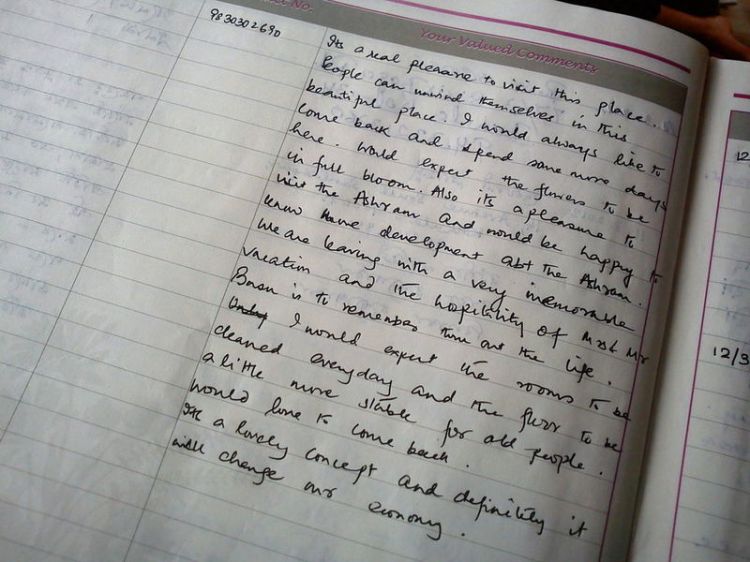 No.
Your Valued Comments
9830302690
Its a real pleasure to visit this place.
People can unwind themselves in this
beautiful place. I would always like to
come back and spend some more days
here. Would expect the flowers to be
in full bloom. Also its a pleasure to
visit the Ashram and would be happy to
know development abt the Ashram.
We are leaving with a very inemorable
vacation and the hospitility of Mrs & Mr
Basu is to remember the life.
I would expect the rooms to be
cleaned everyday and the floor to be
a little more stable for old people.
Would love to come back.
Its a lovely concept and definitely it
will change our economy.
12
12/3